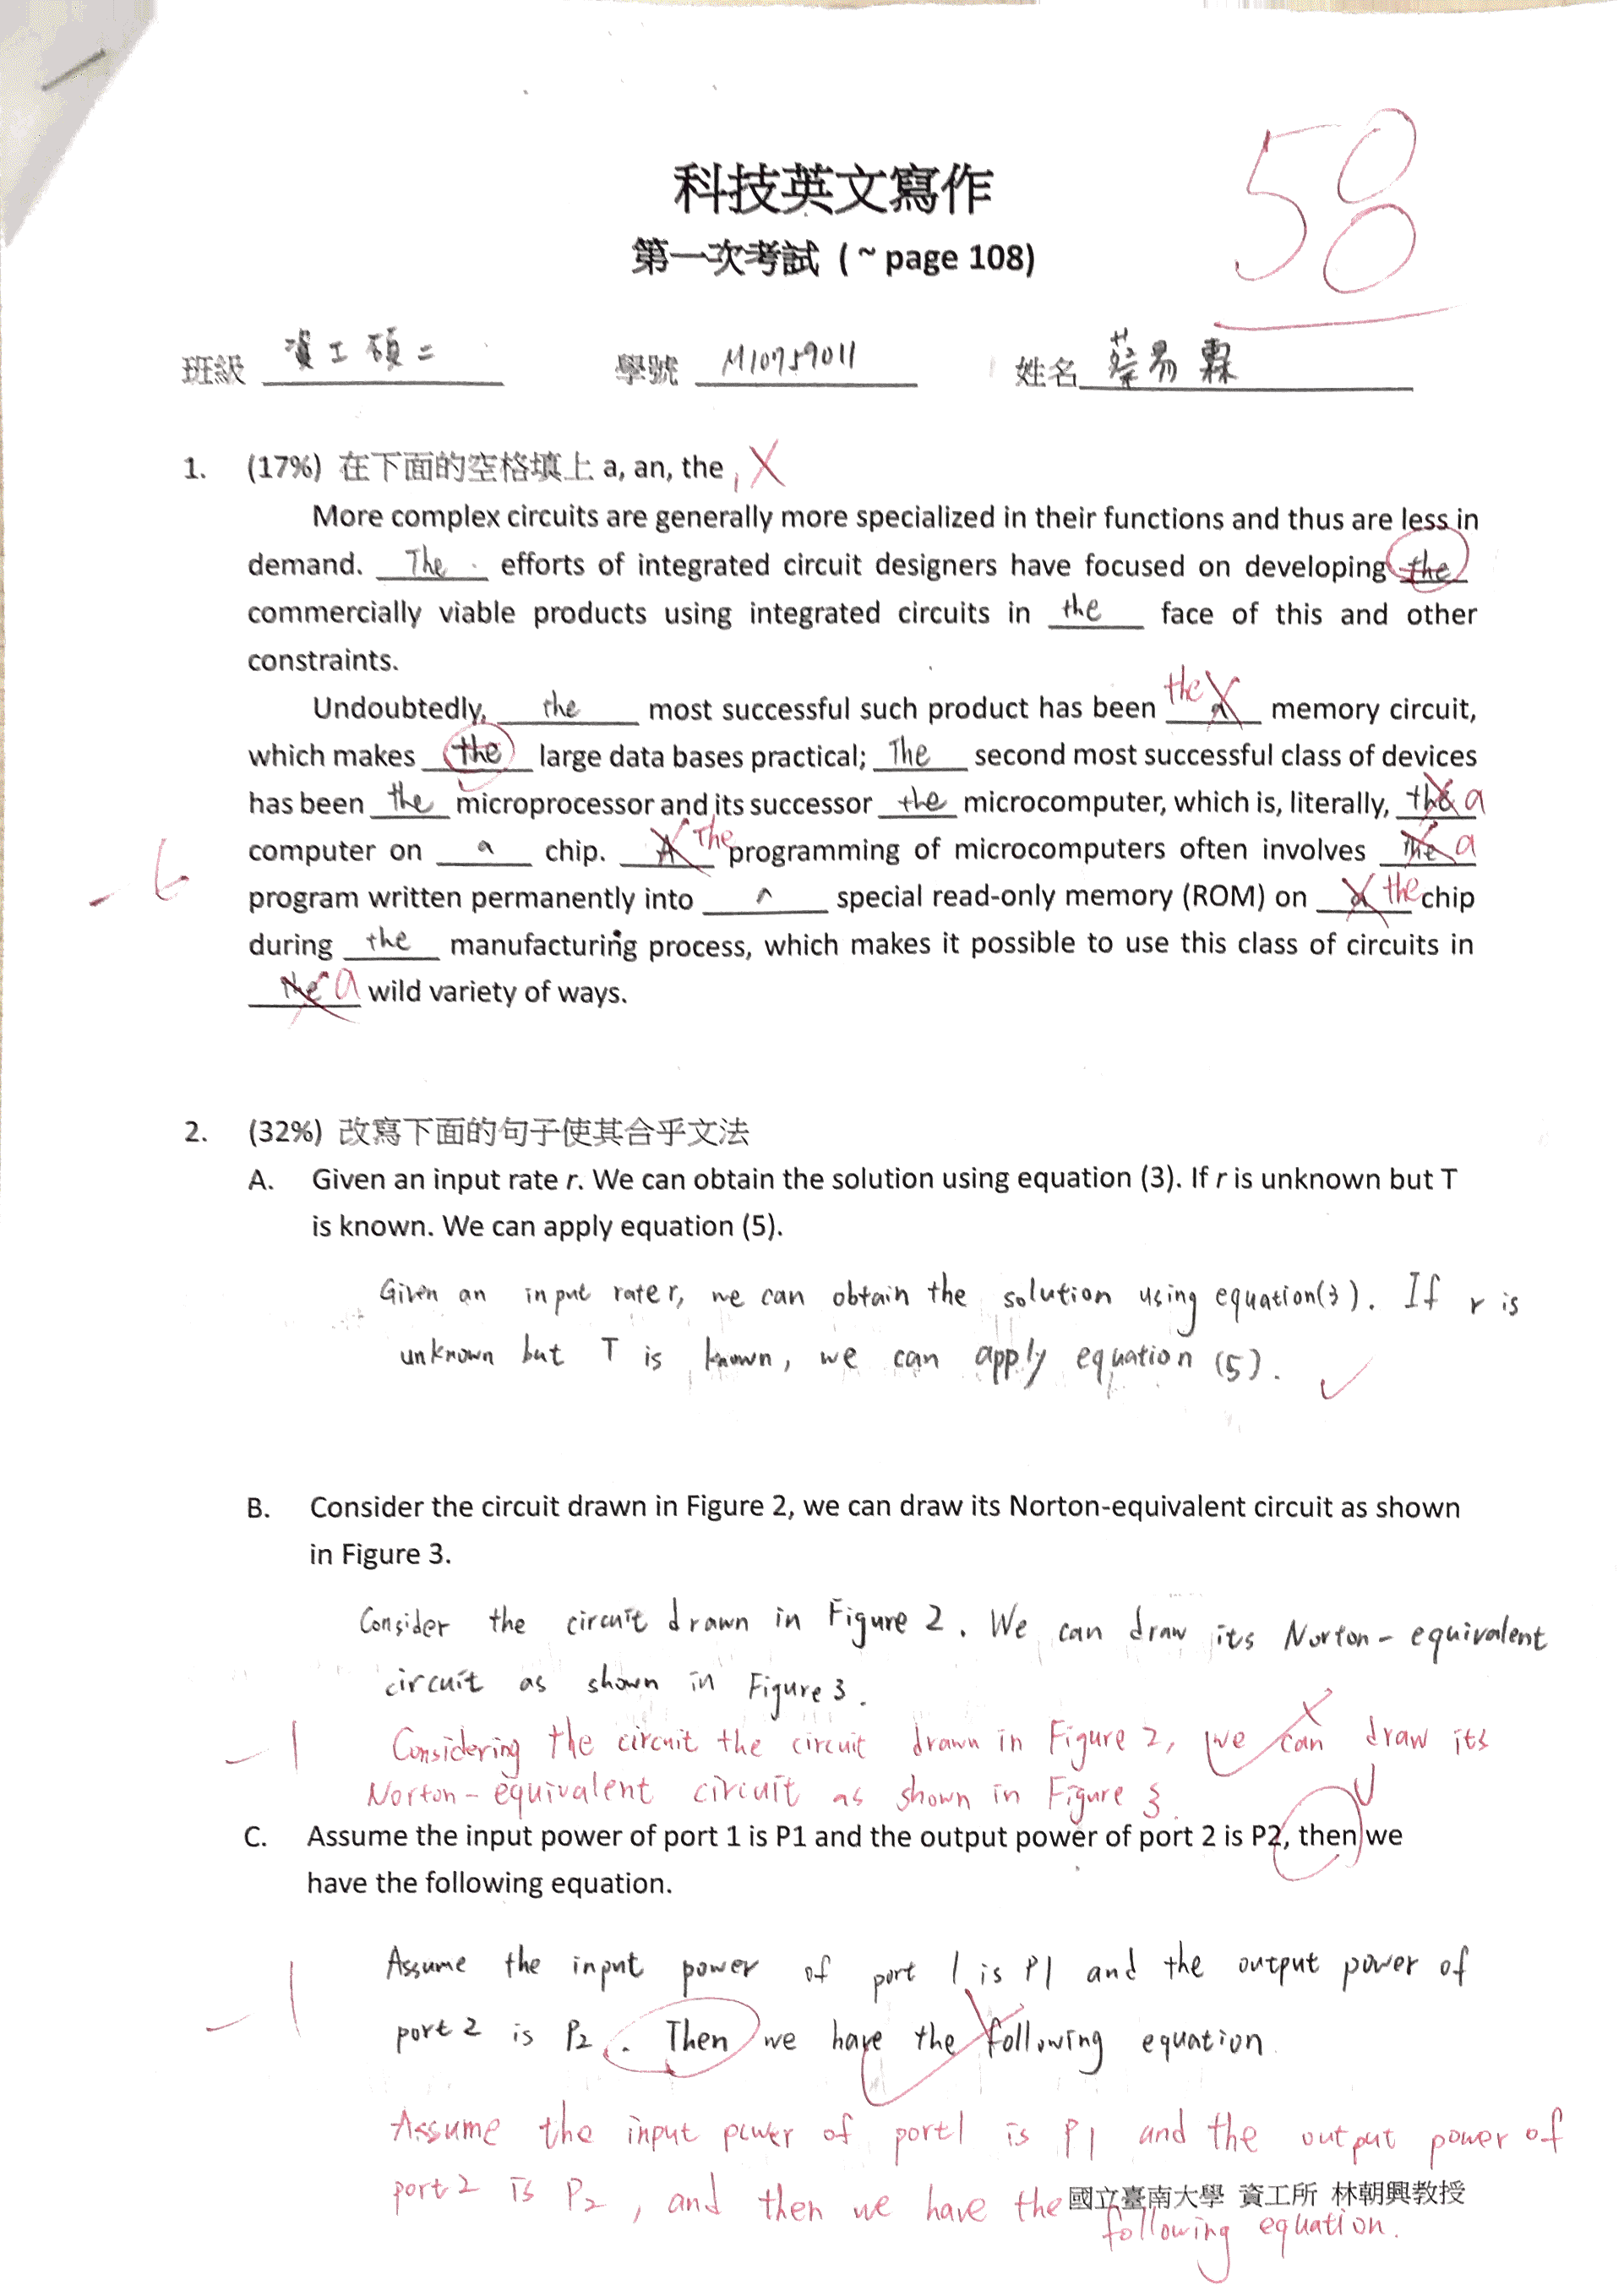 58
科技英文寫作
第一次考試 ( ~ page 108)
班級 資工碩二 學號 M10759011 姓名 蔡易霖
1. (17%) 在下面的空格填上 a, an, the, X
More complex circuits are generally more specialized in their functions and thus are less in
demand. The efforts of integrated circuit designers have focused on developing the
commercially viable products using integrated circuits in the face of this and other
constraints.
Undoubtedly, the most successful such product has been a the memory circuit,
which makes the large data bases practical; The second most successful class of devices
has been the microprocessor and its successor the microcomputer, which is, literally, the a
computer on a chip. A The programming of microcomputers often involves The a
-6
program written permanently into special read-only memory (ROM) on a the chip
during the manufacturing process, which makes it possible to use this class of circuits in
the a wild variety of ways.
2. (32%) 改寫下面的句子使其合乎文法
A. Given an input rate r. We can obtain the solution using equation (3). If r is unknown but T
is known. We can apply equation (5).
Given an input rate r, we can obtain the solution using equation(3). If r is
unknown but T is known, we can apply equation (5).
B. Consider the circuit drawn in Figure 2, we can draw its Norton-equivalent circuit as shown
in Figure 3.
Consider the circuit drawn in Figure 2. We can draw its Norton-equivalent
circuit as shown in Figure 3.
-1 Considering the circuit the circuit drawn in Figure 2, we can draw its
Norton-equivalent circuit as shown in Figure 3.
C. Assume the input power of port 1 is P1 and the output power of port 2 is P2, then we
have the following equation.
Assume the input power of port 1 is P1 and the output power of
-1 port 2 is P2. Then we have the following equation
Assume the input power of port1 is P1 and the output power of
port 2 is P2, and then we have the following equation.
國立臺南大學 資工所 林朝興教授